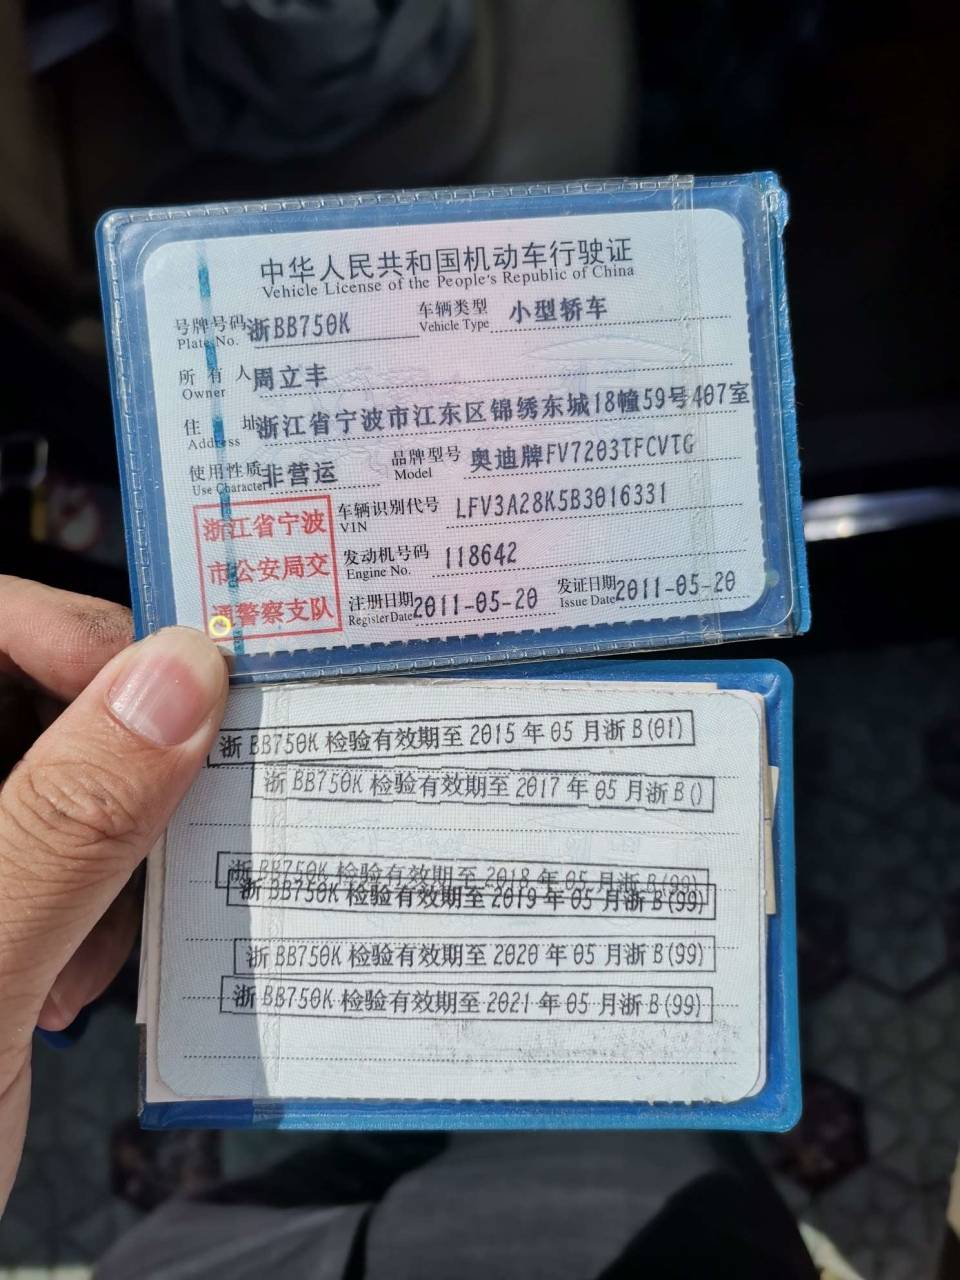 中华人民共和国机动车行驶证
Vehicle License of the People's Republic of China
号牌号码 浙BB750K 车辆类型 小型轿车
Plate No. Vehicle Type
所有人 周立丰
Owner
住址 浙江省宁波市江东区锦绣东城18幢59号407室
Address
使用性质 非营运 品牌型号 奥迪牌FV7203TFCVTG
Use Character Model
浙江省宁波市公安局交通警察支队
车辆识别代号 LFV3A28K5B3016331
VIN
发动机号码 118642
Engine No.
注册日期 2011-05-20 发证日期 2011-05-20
Register Date Issue Date
浙BB750K检验有效期至2015年05月浙B(01)
浙BB750K检验有效期至2017年05月浙B()
浙BB750K检验有效期至2018年05月浙B(99)
浙BB750K检验有效期至2019年05月浙B(99)
浙BB750K检验有效期至2020年05月浙B(99)
浙BB750K检验有效期至2021年05月浙B(99)